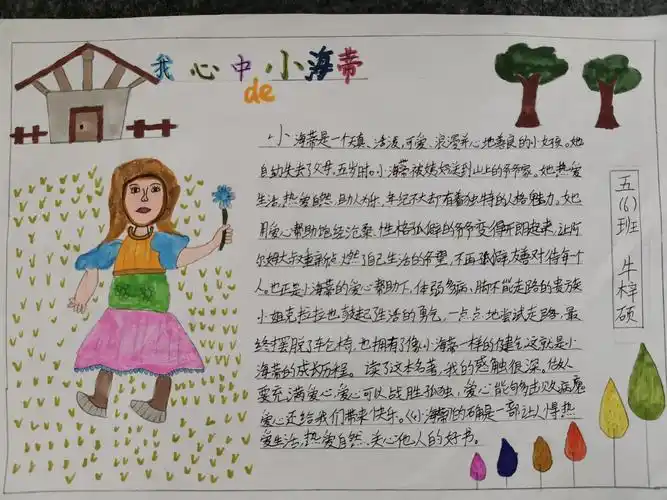 我心中de小海蒂
小海蒂是一个天真、活泼、可爱、浪漫并心地善良的小女孩。她
自幼失去了父母,五岁时。小海蒂被姨妈送到山上的爷爷家。她热爱
生活,热爱自然,助人为乐,年纪不大却有着独特的人格魅力。她
用爱心帮助饱经沧桑、性格孤僻的爷爷变得开朗起来,让阿
尔姆大叔重新点燃了自己生活的希望,不再孤僻,友善对待每个
人。也正是小海蒂的爱心帮助下,体弱多病、脚不能走路的贵族
小姐克拉拉也鼓起生活的勇气,一点点地尝试走路,最
终摆脱了轮椅,也拥有了像小海蒂一样的健气,这就是小
海蒂的成长历程。读了这本名著,我的感触很深。做人
要充满爱心,爱心可以战胜孤独,爱心能够击败病魔
爱心还给我们带来快乐。《小海蒂》的确是一部让人懂得热
爱生活,热爱自然、关心他人的好书。
五(6)班 牛梓硕